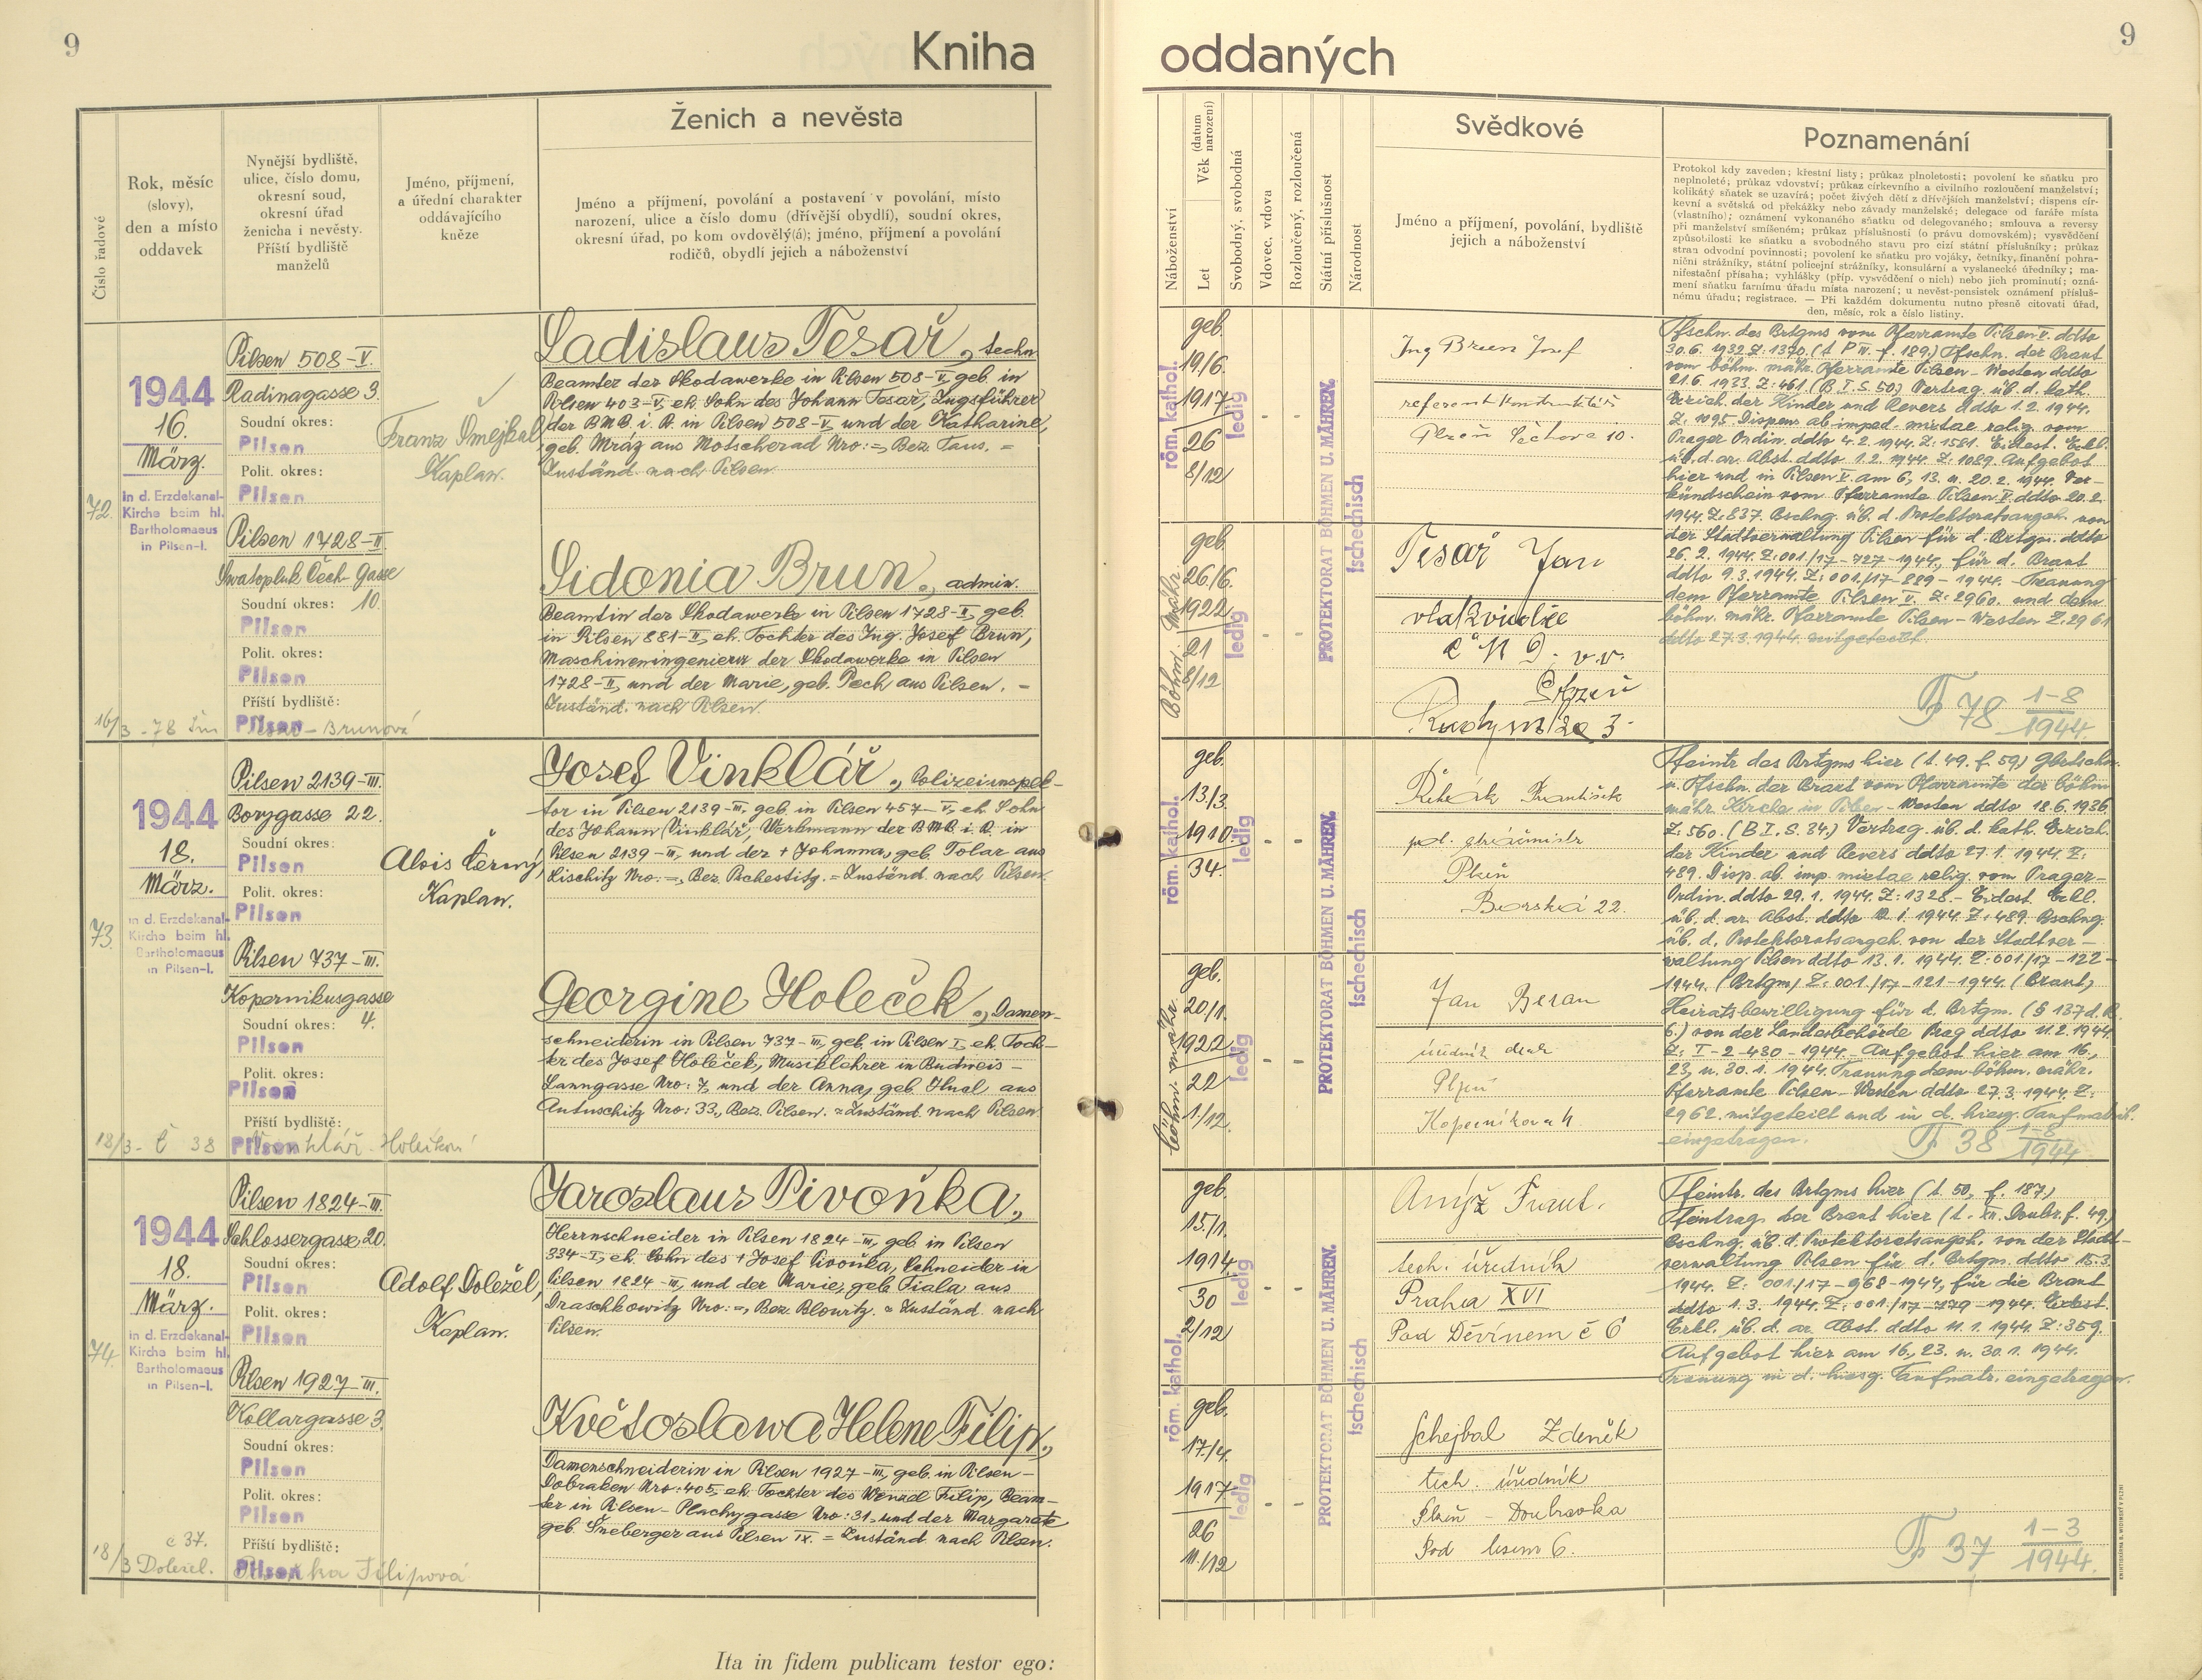 9
Kniha
oddaných
9
Číslo řadové
Rok, měsíc
(slovy),
den a místo
oddavek
Nynější bydliště,
ulice, číslo domu,
okresní soud,
okresní úřad
ženicha i nevěsty.
Příští bydliště
manželů
Jméno, příjmení,
a úřední charakter
oddávajícího
kněze
Ženich a nevěsta
Jméno a příjmení, povolání a postavení v povolání, místo
narození, ulice a číslo domu (dřívější obydlí), soudní okres,
okresní úřad, po kom ovdovělý(á); jméno, příjmení a povolání
rodičů, obydlí jejich a náboženství
Náboženství
Let
Věk (datum narození)
Svobodný, svobodná
Vdovec, vdova
Rozloučený, rozloučená
Státní příslušnost
Národnost
Svědkové
Jméno a příjmení, povolání, bydliště
jejich a náboženství
Poznamenání
Protokol kdy zaveden; křestní listy; průkaz plnoletosti; povolení ke sňatku pro
neplnoleté; průkaz vdovství; průkaz církevního a civilního rozloučení manželství;
kolikátý sňatek se uzavírá; počet živých dětí z dřívějších manželství; dispens cír-
kevní a světská od překážky nebo závady manželské; delegace od faráře místa
(vlastního); oznámení vykonaného sňatku od delegovaného; smlouva a reversy
při manželství smíšeném; průkaz příslušnosti (o právu domovském); vysvědčení
způsobilosti ke sňatku a svobodného stavu pro cizí státní příslušníky; průkaz
stran odvodní povinnosti; povolení ke sňatku pro vojáky, četníky, finanční pohra-
niční strážníky, státní policejní strážníky, konsulární a vyslanecké úředníky; ma-
nifestační přísaha; vyhlášky (příp. vysvědčení o nich) nebo jich prominutí; ozná-
mení sňatku farnímu úřadu místa narození; u nevěst-pensistek oznámení přísluš-
nému úřadu; registrace. — Při každém dokumentu nutno přesně citovati úřad,
den, měsíc, rok a číslo listiny.
72.
1944
16.
März.
in d. Erzdekanal-
Kirche beim hl.
Bartholomaeus
in Pilsen-I.
Pilsen 508-V.
Radinagasse 3.
Soudní okres:
Pilsen
Polit. okres:
Pilsen
Pilsen 1728-II.
Swatopluk Čech-Gasse
Soudní okres: 10.
Pilsen
Polit. okres:
Pilsen
Příští bydliště:
Pilsen
16/3 - 78 Šm
Brunová
Franz Šmejkal,
Kaplan.
Ladislaus Tesař, techn.
Beamter der Skodawerke in Pilsen 508-V, geb. in
Pilsen 403-V, eh. Sohn des Johann Tesař, Zugsführer
der BMB. i. R. in Pilsen 508-V, und der Katharina,
geb. Mráz aus Motscherad Nro: =, Bez. Taus. =
Zuständ. nach Pilsen.
Sidonia Brun, admin.
Beamtin der Skodawerke in Pilsen 1728-II, geb.
in Pilsen 881-II, eh. Tochter des Ing. Josef Brun,
Maschineningenieur der Skodawerke in Pilsen
1728-II, und der Marie, geb. Pech aus Pilsen. =
Zuständ. nach Pilsen.
röm. kathol.
geb.
19/6.
1917
26
8/12
ledig
Böhm. Mähr.
geb.
26/6.
1922
21
8/12
ledig
PROTEKTORAT BÖHMEN U. MÄHREN.
tschechisch
Ing Brun Josef
Plzeň Čechova 10.
Tesař Jan
vlakvůdce
Plzeň
Pfschn. des Brtgms vom Pfarramte Pilsen V. ddto
30.6. 1932 Z: 1370. (t. P IV. f. 189.) Pfschn. der Braut
vom böhm. mähr. Pfarramte Pilsen - Westen ddto
21.6. 1933. Z: 461. (B. I. S. 50.) Vertrag üb. d. kath.
Erzieh. der Kinder und Revers ddto 1.2. 1944.
Z: 1095. Dispens ab imped. mixtae relig. vom
Prager Ordin. ddto 4.2. 1944. Z: 1581. Eidest. Erkl.
üb. d. ar. Abst. ddto 1.2. 1944. Z: 1089. Aufgebot
hier und in Pilsen V. am 6., 13. u. 20.2. 1944. Ver-
kündschein vom Pfarramte Pilsen V. ddto 20.2.
1944. Z: 837. Bschng. üb. d. Protektoratsangeh. von
der Stadtverwaltung Pilsen für d. Brtgm. ddto
26.2. 1944. Z: 001./17-727-1944., für d. Braut
ddto 9.3. 1944. Z: 001./17-889-1944. Trauung
dem Pfarramte Pilsen V. Z: 2960. und dem
böhm. mähr. Pfarramte Pilsen - Westen Z: 2961
ddto 27.3. 1944. mitgeteilt.
78 1-8
1944.
73.
1944
18.
März.
in d. Erzdekanal-
Kirche beim hl.
Bartholomaeus
in Pilsen-I.
Pilsen 2139-III.
Borygasse 22.
Soudní okres:
Pilsen
Polit. okres:
Pilsen
Pilsen 737-III.
Kopernikusgasse
Soudní okres: 4.
Pilsen
Polit. okres:
Pilsen
Příští bydliště:
Pilsen
18/3 - č 38
Alois Černý,
Kaplan.
Josef Vinklář, Polizeiinspek-
tor in Pilsen 2139-III, geb. in Pilsen 457-V, eh. Sohn
des Johann Vinklář, Werkmann der BMB. i. R. in
Pilsen 2139-III, und der + Johanna, geb. Tolar aus
Lischitz Nro: =, Bez. Pschestitz. = Zuständ. nach Pilsen.
Georgine Holeček, Damen-
schneiderin in Pilsen 737-III, geb. in Pilsen I, eh. Toch-
ter des Josef Holeček, Musiklehrer in Budweis-
Lanngasse Nro: 7, und der Anna, geb. aus
Nro: 33., Bez. Pilsen. = Zuständ. nach Pilsen.
röm. kathol.
geb.
13/3.
1910.
34.
ledig
böhm. mähr.
geb.
20/1.
1922.
22
1/12.
ledig
PROTEKTORAT BÖHMEN U. MÄHREN.
tschechisch
František
pol. strážmistr
Plzeň
Borská 22.
Jan Beran
Plzeň
Koperníkova 4.
Pfeintr. des Brtgms hier (t. 49. f. 59) Gbrtschn.
u. Pfschn. der Braut vom Pfarramte der böhm.
mähr. Kirche in Pilsen - Westen ddto 18.6. 1936
Z: 560. (B I. S. 34.) Vertrag üb. d. kath. Erzieh.
der Kinder und Revers ddto 27.1. 1944. Z:
489. Disp. ab. imp. mixtae relig. vom Prager-
Ordin. ddto 29.1. 1944. Z: 1328. - Eidest. Erkl.
üb. d. ar. Abst. ddto 12.1. 1944. Z: 489. Bschng.
üb. d. Protektoratsangeh. von der Stadtver-
waltung Pilsen ddto 13.1. 1944. Z: 001./17-122-
1944. (Brtgm) Z: 001./17-121-1944. (Braut)
Heiratsbewilligung für d. Brtgm. (§ 137 d.
) von der Landesbehörde Prag ddto 11.2. 1944.
Z: I-2-430-1944. Aufgebot hier am 16.,
23, u. 30.1. 1944. Trauung dem böhm. mähr.
Pfarramte Pilsen - Westen ddto 27.3. 1944. Z:
2962. mitgeteilt und in d. hiesig. Taufmatrik.
eingetragen.
38 1-8
1944
74.
1944
18.
März.
in d. Erzdekanal-
Kirche beim hl.
Bartholomaeus
in Pilsen-I.
Pilsen 1824-III.
Schlossergasse 20.
Soudní okres:
Pilsen
Polit. okres:
Pilsen
Pilsen 1927-III.
Kollargasse 3.
Soudní okres:
Pilsen
Polit. okres:
Pilsen
č 37.
Příští bydliště:
Pilsen
18/3 Doležel.
Filipová
Adolf Doležel,
Kaplan.
Jaroslaus Pivoňka,
Herrnschneider in Pilsen 1824-III, geb. in Pilsen
334-I, eh. Sohn des + Josef Pivoňka, Schneider in
Pilsen 1824-III, und der Marie, geb. Fiala aus
Draschkowitz Nro: =, Bez. Blowitz. = Zuständ. nach
Pilsen.
Květoslawa Helene Filip,
Damenschneiderin in Pilsen 1927-III, geb. in Pilsen-
Dobraken Nro: 405, eh. Tochter des Wenzel Filip, Beam-
ter in Pilsen - Plachygasse Nro: 31, und der Margarete
geb. Šneberger aus Pilsen IX. = Zuständ. nach Pilsen.
röm. kathol.
geb.
15/1.
1914.
30
2/12
ledig
geb.
17/4.
1917
26
11/12
ledig
PROTEKTORAT BÖHMEN U. MÄHREN.
tschechisch
tech. úředník
Praha XVI
Pod Děvínem č 6
Schejbal Zdeněk
tech. úředník
Plzeň - Doubravka
Pod lesem 6.
Pfeintr. des Brtgms hier (t. 50, f. 187)
Pfeintrag. der Braut hier (t. XII. Doubr. f. 49)
Bschng. üb. d. Protektoratsangeh. von der Stadt-
verwaltung Pilsen für d. Brtgm. ddto 15.3.
1944. Z: 001./17-968-1944, für die Braut
ddto 1.3. 1944. Z: 001./17-779-1944. Eidest.
Erkl. üb. d. ar. Abst. ddto 11.1. 1944. Z: 359.
Aufgebot hier am 16., 23. u. 30.1. 1944.
Trauung in d. hiesg. Taufmatr. eingetragen.
37 1-3
1944.
Ita in fidem publicam testor ego: